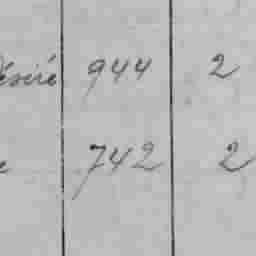 944 2
742 2